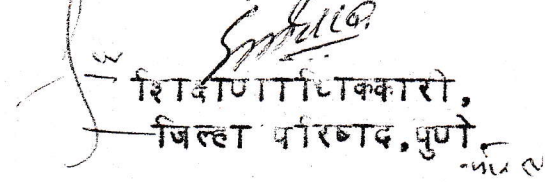 शिक्षणाधिकारी,
जिल्हा परिषद, पुणे.